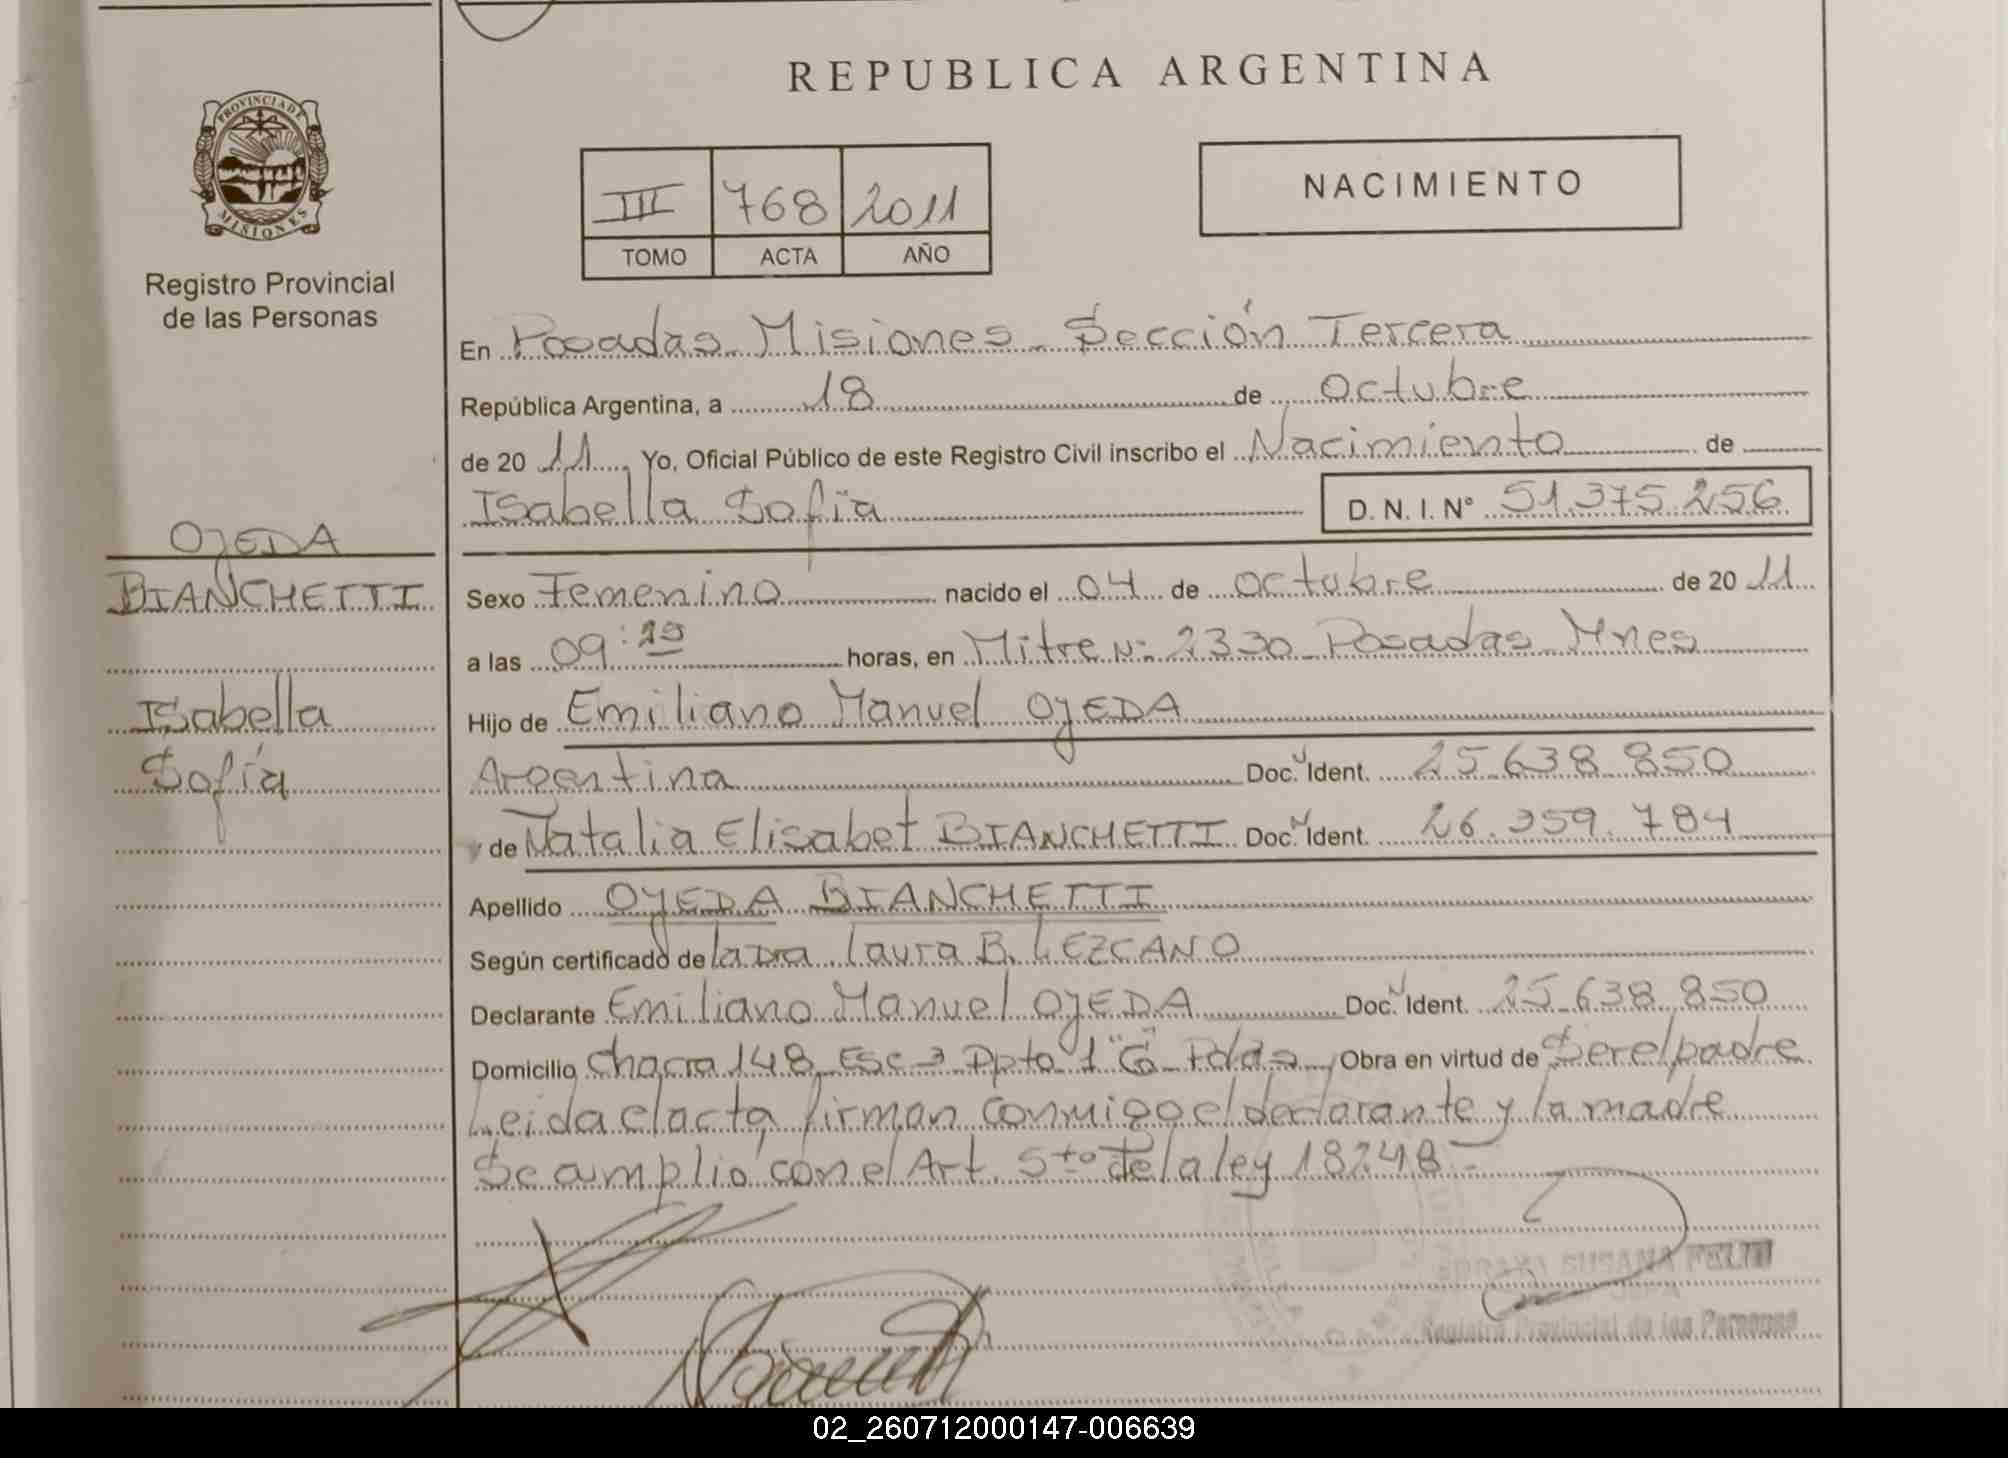 REPUBLICA ARGENTINA
PROVINCIA DE
MISIONES
Registro Provincial
de las Personas
III 768 2011
TOMO ACTA AÑO
NACIMIENTO
En Posadas Misiones Sección Tercera
República Argentina, a 18 de octubre
de 20 11, Yo, Oficial Público de este Registro Civil inscribo el Nacimiento de
Isabella Sofía D. N. I. N° 51.375.256
OJEDA
BIANCHETTI
Isabella
Sofía
Sexo Femenino nacido el 04 de octubre de 20 11
a las 09:29 horas, en Mitre N: 2330 Posadas Mnes
Hijo de Emiliano Manuel OJEDA
Argentina Doc. Ident. 25.638.850
y de Natalia Elisabet BIANCHETTI Doc. Ident. 26.359.784
Apellido OJEDA BIANCHETTI
Según certificado de la Dra. Laura B. LEZCANO
Declarante Emiliano Manuel OJEDA Doc. Ident. 25.638.850
Domicilio Chacra 148 Esc 3 Dpto 1 "G" Pdas Obra en virtud de Ser el padre
Leida el acta, firman conmigo el declarante y la madre
Se amplió con el Art. 5to De la ley 18248-
SUSANA
JEFA
Registro Provincial de las Personas
02_260712000147-006639